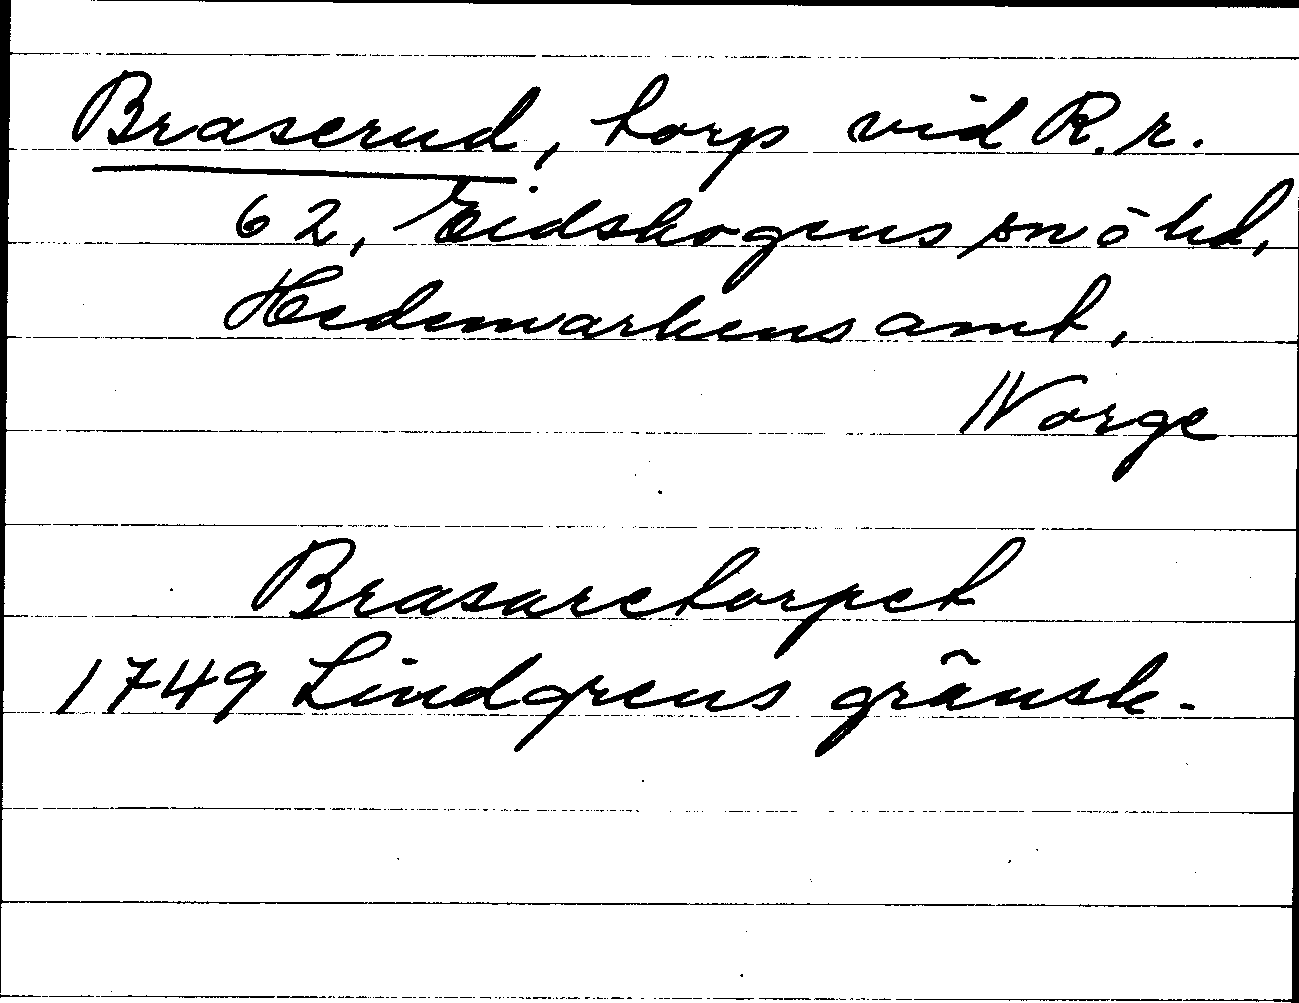 Braserud, torp vid R.r.
62, Eidskogens sn ö hd,
Hedemarkens amt,
Norge
Brasaretorpet
1749 Lindgrens gränsk.